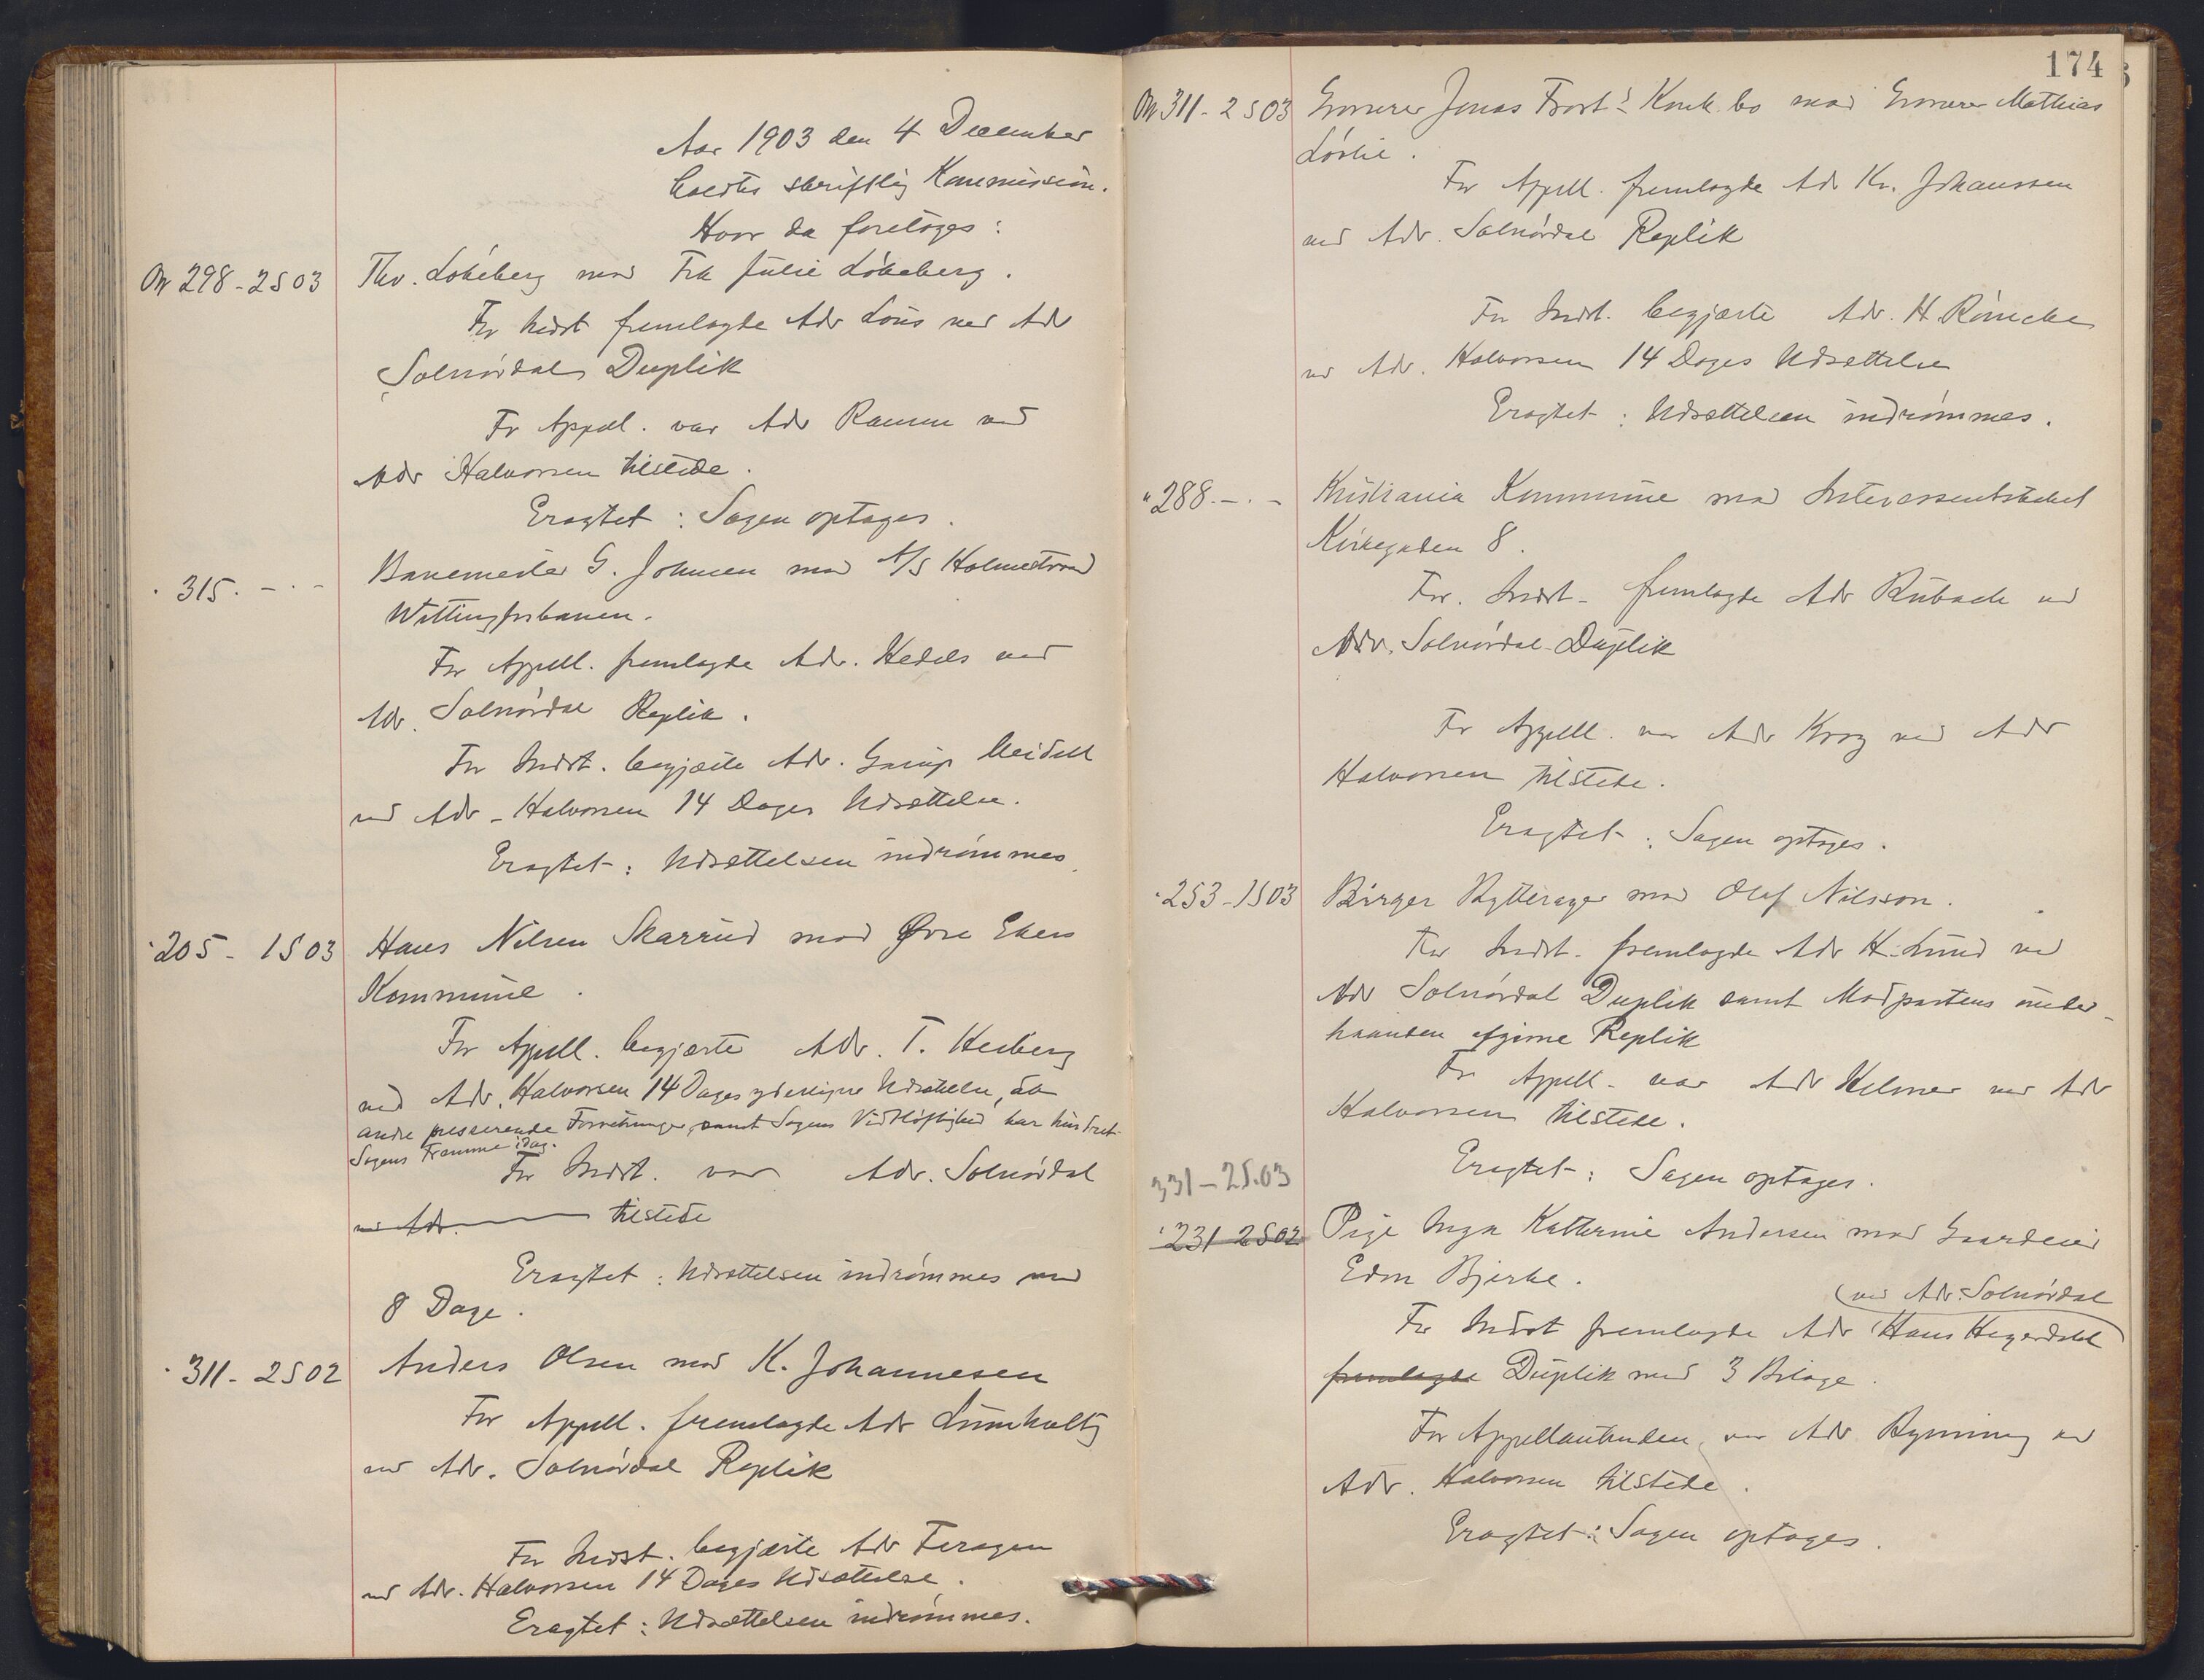 Aar 1903 den 4 December
holdtes skriftlig Kommission.
Hvor da foretoges:
No 298-2S03 Thv. Løkeberg mod Fru Julie Løkeberg.
For Indst fremlagde Adv Lous ved Adv
Solnørdal Duplik
For Appel. var Adv Ramm ved
Adv Halvorsen tilstede.
Eragtet: Sagen optages.
" 315. - " - Banemester G. Johnsen mod A/S Holmestrand
Wittingfosbanen.
For Appell. fremlagde Adv. Hedels ved
Adv. Solnørdal Replik.
For Indst. begjærte Adv. Gaarup Meidell
ved Adv. Halvorsen 14 Dages Udsættelse.
Eragtet: Udsættelsen indrømmes.
" 205 - 1S03 Hans Nilsen Skarrud mod Øvre Ekers
Kommune.
For Appell. begjærte Adv. T. Heiberg
ved Adv. Halvorsen 14 Dages yderligere Udsættelse, da
andre presserende Forretninger samt Sagens Vidtløftighed har hindret
Sagens Fremme idag.
For Indst. var Adv. Solnørdal
ved Adv. tilstede
Eragtet: Udsættelsen indrømmes med
8 Dage.
" 311 - 2S02 Anders Olsen mod K. Johannesen
For Appell. fremlagde Adv Lumholtz
ved Adv. Solnørdal Replik
For Indst. begjærte Adv Feragen
ved Adv. Halvorsen 14 Dages Udsættelse.
Eragtet: Udsættelsen indrømmes.
174
No 311-2S03 Grosserer Jonas Frost's Konk.bo mod Grosserer Mathias
Lørlie.
For Appell. fremlagde Adv Kr. Johanssen
ved Adv. Solnørdal Replik
For Indst. begjærte Adv. H. Rønneche
ved Adv. Halvorsen 14 Dages Udsættelse
Eragtet: Udsættelsen indrømmes.
" 288 - " - Kristiania Kommune mod Interessentskabet
Kirkegaden 8.
For Indst. fremlagde Adv Rubach ved
Adv. Solnørdal Duplik
For Appell. var Adv Krog ved Adv
Halvorsen tilstede.
Eragtet: Sagen optages.
" 253-1S03 Birger Rytterager mod Olaf Nilsson.
For Indst. fremlagde Adv H. Lund ved
Adv Solnørdal Duplik samt Modpartens under-
haanden afgivne Replik
For Appell. var Adv Helmer ved Adv
Halvorsen tilstede.
Eragtet: Sagen optages.
331-2S.03
" 231 2S02 Pige Inga Katherine Andersen mod Gaardeier
Edm Bjerke.
ved Adv. Solnørdal
For Indst fremlagde Adv Hans Hegerdahl
fremlagde Duplik med 3 Bilage.
For Appellantinden var Adv Rynning ved
Adv. Halvorsen tilstede.
Eragtet: Sagen optages.